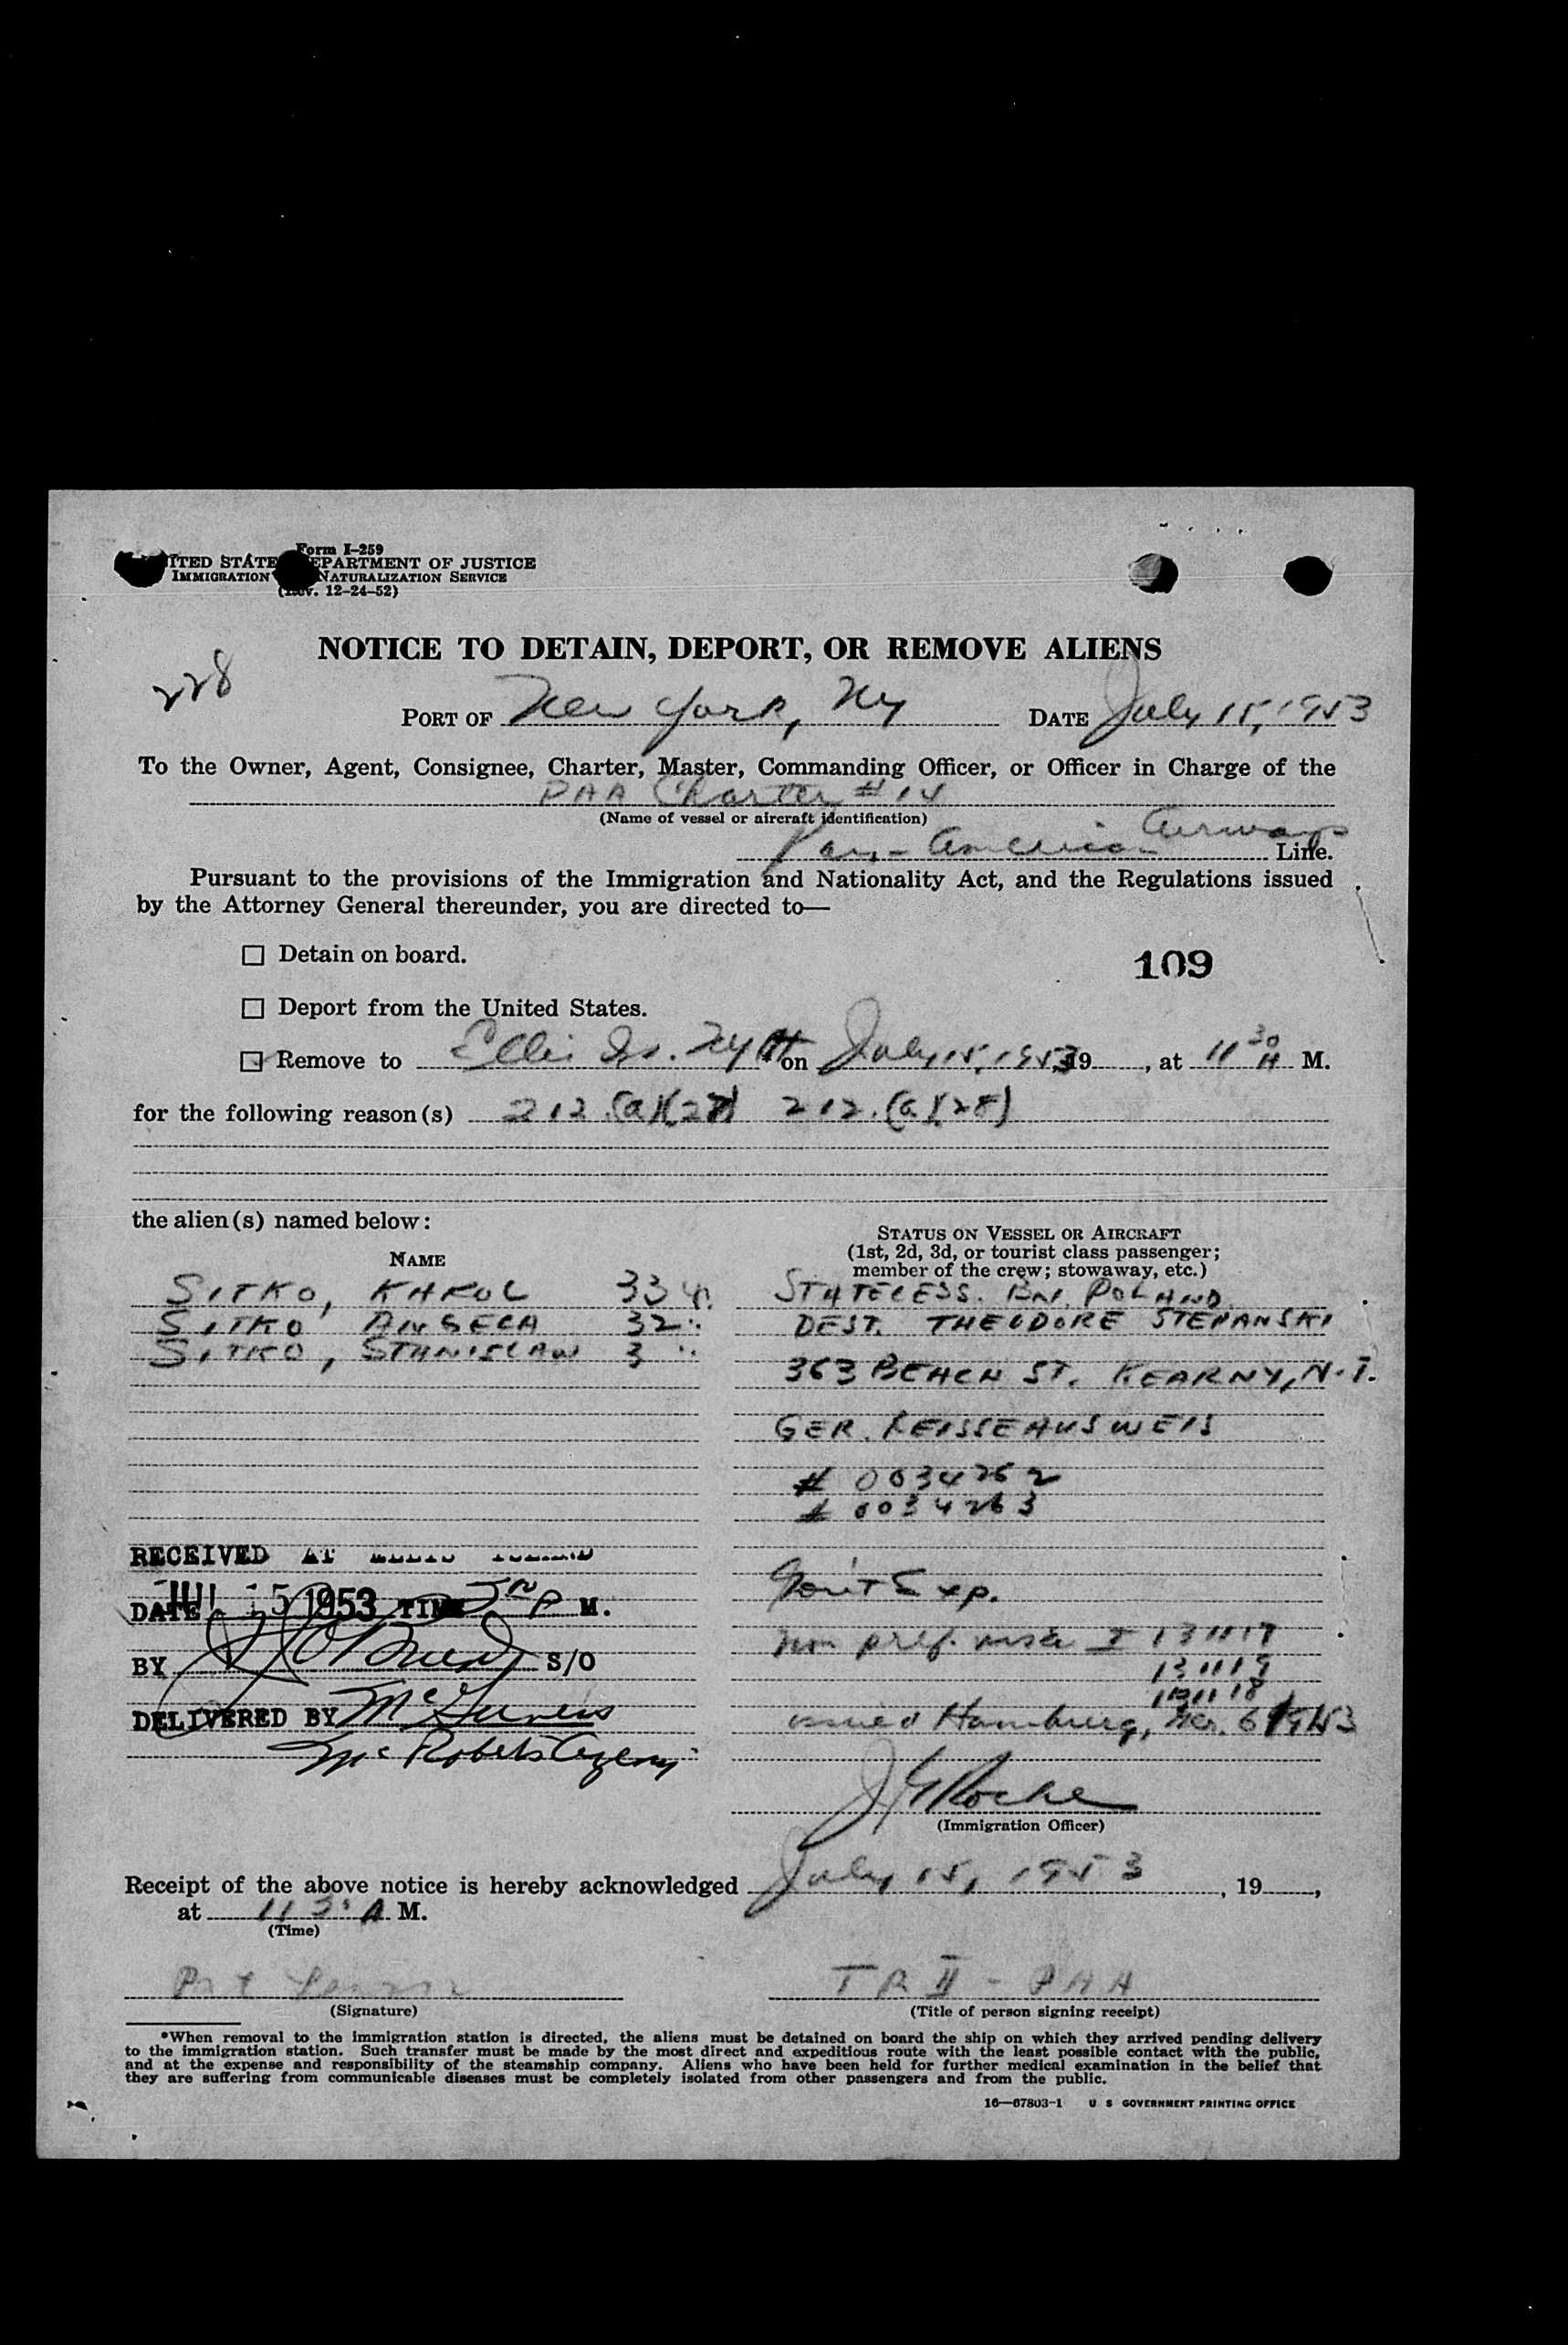 Form I-259
ITED STATE EPARTMENT OF JUSTICE
IMMIGRATION NATURALIZATION SERVICE
(Rev. 12-24-52)
NOTICE TO DETAIN, DEPORT, OR REMOVE ALIENS
228
PORT OF New York, NY DATE July 15, 1953
To the Owner, Agent, Consignee, Charter, Master, Commanding Officer, or Officer in Charge of the
PAA Charter # 14
(Name of vessel or aircraft identification)
Pan-American Airways Line.
Pursuant to the provisions of the Immigration and Nationality Act, and the Regulations issued
by the Attorney General thereunder, you are directed to—
Detain on board.
109
Deport from the United States.
Remove to Ellis Is. NY * on July 15, 1953, 19 , at 11 30 A M.
for the following reason(s) 212.(a)(27) 212.(a)(28)
the alien(s) named below:
NAME
STATUS ON VESSEL OR AIRCRAFT
(1st, 2d, 3d, or tourist class passenger;
member of the crew; stowaway, etc.)
SITKO, KAROL 33 y.
SITKO ANGELA 32 "
SITKO, STANISLAW 3 "
STATELESS. BN. POLAND
DEST. THEODORE STEPANSKI
363 BEACH ST. KEARNY, N.J.
GER. REISSEAUSWEIS
# 0034262
# 0034263
Gov't Exp.
Non pref. visa I 131117
131119
131118
issued Hamburg, Ger. 6/9/53
RECEIVED AT ELLIS ISLAND
DATE JUL 15 1953 TIME P M.
BY J O'Brien S/O
DELIVERED BY
McRoberts Agency
J G Roche
(Immigration Officer)
Receipt of the above notice is hereby acknowledged July 15, 1953, 19 ,
at 11 30 A M.
(Time)
(Signature)
TR II - PAA
(Title of person signing receipt)
*When removal to the immigration station is directed, the aliens must be detained on board the ship on which they arrived pending delivery
to the immigration station. Such transfer must be made by the most direct and expeditious route with the least possible contact with the public,
and at the expense and responsibility of the steamship company. Aliens who have been held for further medical examination in the belief that
they are suffering from communicable diseases must be completely isolated from other passengers and from the public.
16—67803-1 U S GOVERNMENT PRINTING OFFICE